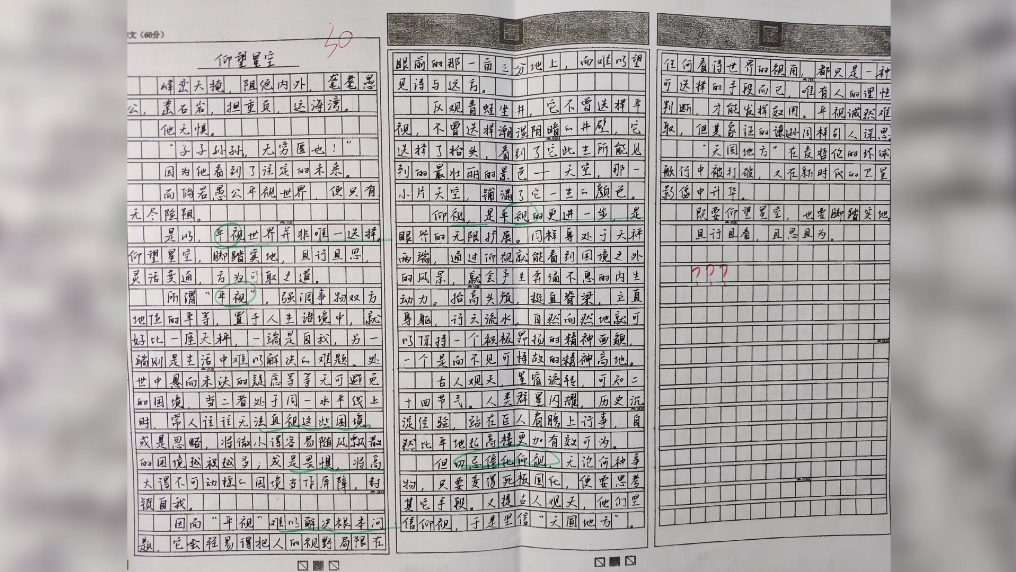 文（60分）
50
仰望星空
峰峦天掩，阻绝内外，耄耋愚
公，凿石岩，担重负，运海湾。
他无惧。
“子子孙孙，无穷匮也！”
因为他看到了注定的未来。
而倘若愚公平视世界，便只有
无尽险阻。
是以，平视世界并非唯一选择，
仰望星空，脚踏实地，且行且思，
灵活变通，方为可取之道。
所谓“平视”，强调事物双方
地位的平等，置于人生语境中，就
好比一座天秤，一端是自我，另一
端则是生活中难以解决的难题。处
世中悬而未决的疑虑等等无可避免
的困境，当二者处于同一水平线上
时，常人往往无法直视这些困境。
或是忽略，将微小得容易随风飘散
的困境越积越多；或是畏惧，将高
大得不可动摇的困境当作屏障，封
锁自我。
因而“平视”难以解决根本问
题，它会轻易得把人的视野局限在
眼前的那一亩三分地上，而难以望
见诗与远方。
反观青蛙坐井，它不曾选择平
视，不曾选择潮湿阴暗的井壁，它
选择了抬头，看到了它此生所能见
到的最壮丽的景色——天空，那一
小片天空，铺满了它一生的颜色。
仰视，是平视的更进一步，是
眼界的无限扩展。同样身处于天秤
两端，通过仰视就能看到困境之外
的风景，就会产生奔涌不息的内生
动力。抬高头颅，挺直脊梁，立直
身躯，行云流水，自然而然地就可
以保持一个积极昂扬的精神面貌，
一个是向不见可悖故的精神高地。
古人观天，星宿流转，可知二
十四节气。人类群星闪耀，历史沉
淀经验，站在巨人肩膀上行事，自
然比平地起高楼更加有效可为。
但勿忘僵化仰视，无论何种事
物，只要变得死板固化，便要思考
其它手段。又提古人观天，他们坚
信仰视，于是坚信“天圆地方”。
任何看待世界的视角，都只是一种
可选择的手段而已，唯有人的理性
判断，才能发挥效用。平视诚然难
取，但其象征的谦逊同样引人深思
“天圆地方”在麦哲伦的环球
航行中被打破，又在新时代的卫星
影像中升华。
既要仰望星空，也要脚踏实地
且行且看，且思且为。
？？？